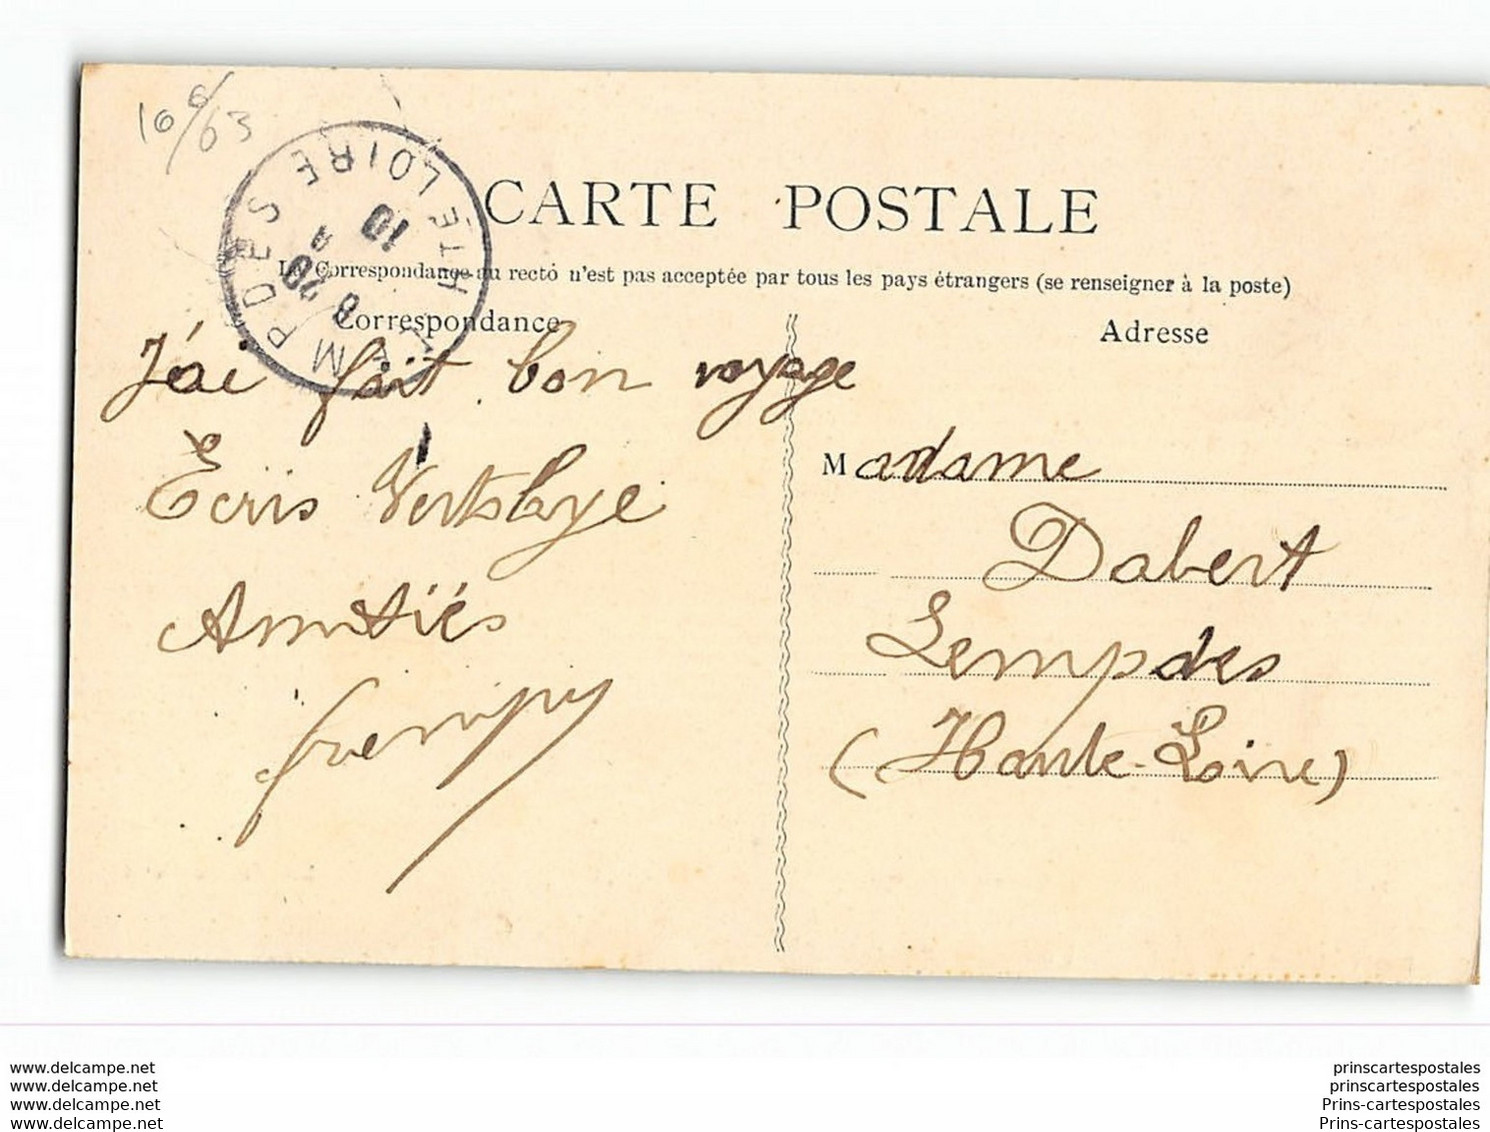 CARTE POSTALE
La Correspondance au recto n'est pas acceptée par tous les pays étrangers (se renseigner à la poste)
Correspondance
Adresse
LEMPDES HTE LOIRE
8 20
10
J'ai fait bon voyage
Écris Vertolaye
Amitiés
Madame
Dabert
Lempdes
(Haute-Loire)
www.delcampe.net
www.delcampe.net
www.delcampe.net
www.delcampe.net
prinscartespostales
prinscartespostales
Prins-cartespostales
Prins-cartespostales